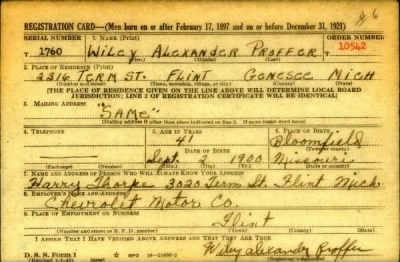 # 6
REGISTRATION CARD—(Men born on or after February 17, 1897 and on or before December 31, 1921)
SERIAL NUMBER 1. NAME (Print) ORDER NUMBER
1760 WILEY ALEXANDER PROFFER 10542
(First) (Middle) (Last)
2. PLACE OF RESIDENCE (Print)
2316 TERM ST. FLINT GENESEE MICH
(Number and street) (Town, township, village, or city) (County) (State)
[THE PLACE OF RESIDENCE GIVEN ON THE LINE ABOVE WILL DETERMINE LOCAL BOARD
JURISDICTION; LINE 2 OF REGISTRATION CERTIFICATE WILL BE IDENTICAL]
3. MAILING ADDRESS
"SAME"
[Mailing address if other than place indicated on line 2. If same insert word same]
4. TELEPHONE 5. AGE IN YEARS 6. PLACE OF BIRTH
41 Bloomfield
DATE OF BIRTH (Town or county)
Sept. 2 1900 Missouri
(Exchange) (Number) (Mo.) (Day) (Yr.) (State or country)
7. NAME AND ADDRESS OF PERSON WHO WILL ALWAYS KNOW YOUR ADDRESS
Harry Thorpe 3020 Term St. Flint Mich
8. EMPLOYER'S NAME AND ADDRESS
Chevrolet Motor Co.
9. PLACE OF EMPLOYMENT OR BUSINESS
Flint
(Number and street or R. F. D. number) (Town) (County) (State)
I AFFIRM THAT I HAVE VERIFIED ABOVE ANSWERS AND THAT THEY ARE TRUE.
D. S. S. Form 1 Wiley alexander Proffer